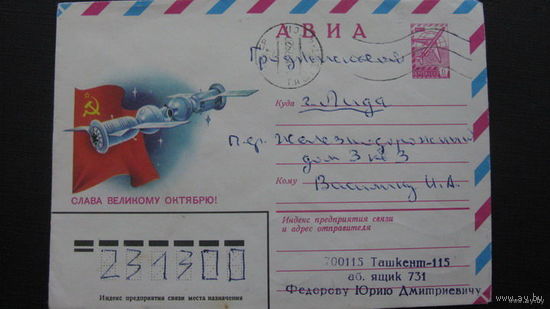 АВИА
Гродненская
Куда г. Лида
п-р. Железнодорожный
дом 3 кв 3
Кому Василину И.А.
СЛАВА ВЕЛИКОМУ ОКТЯБРЮ!
Индекс предприятия связи
и адрес отправителя
700115 Ташкент-115
аб. ящик 731
Федорову Юрию Дмитриевичу
231300
Индекс предприятия связи места назначения
www.ay.by